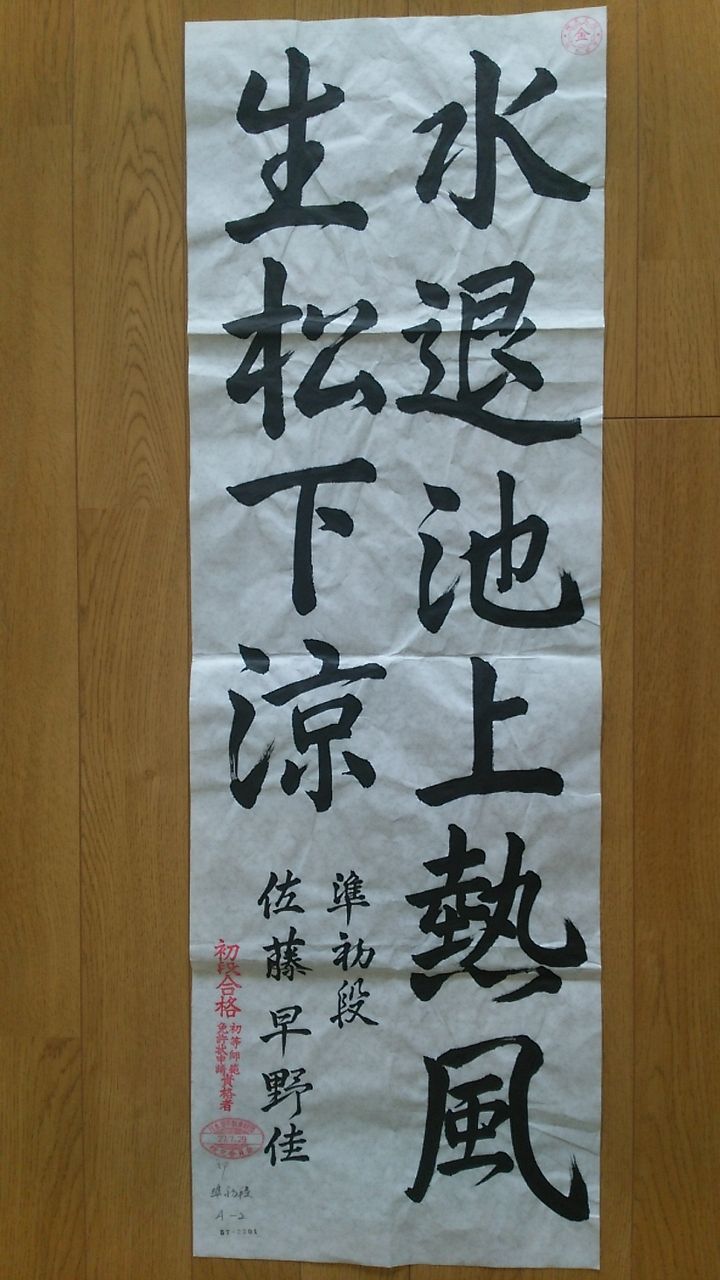 水退池上熱風
生松下涼
準初段
佐藤早野佳
初段合格
初等師範
免許状申請
資格者
金
27.7.29
準初段
A-2